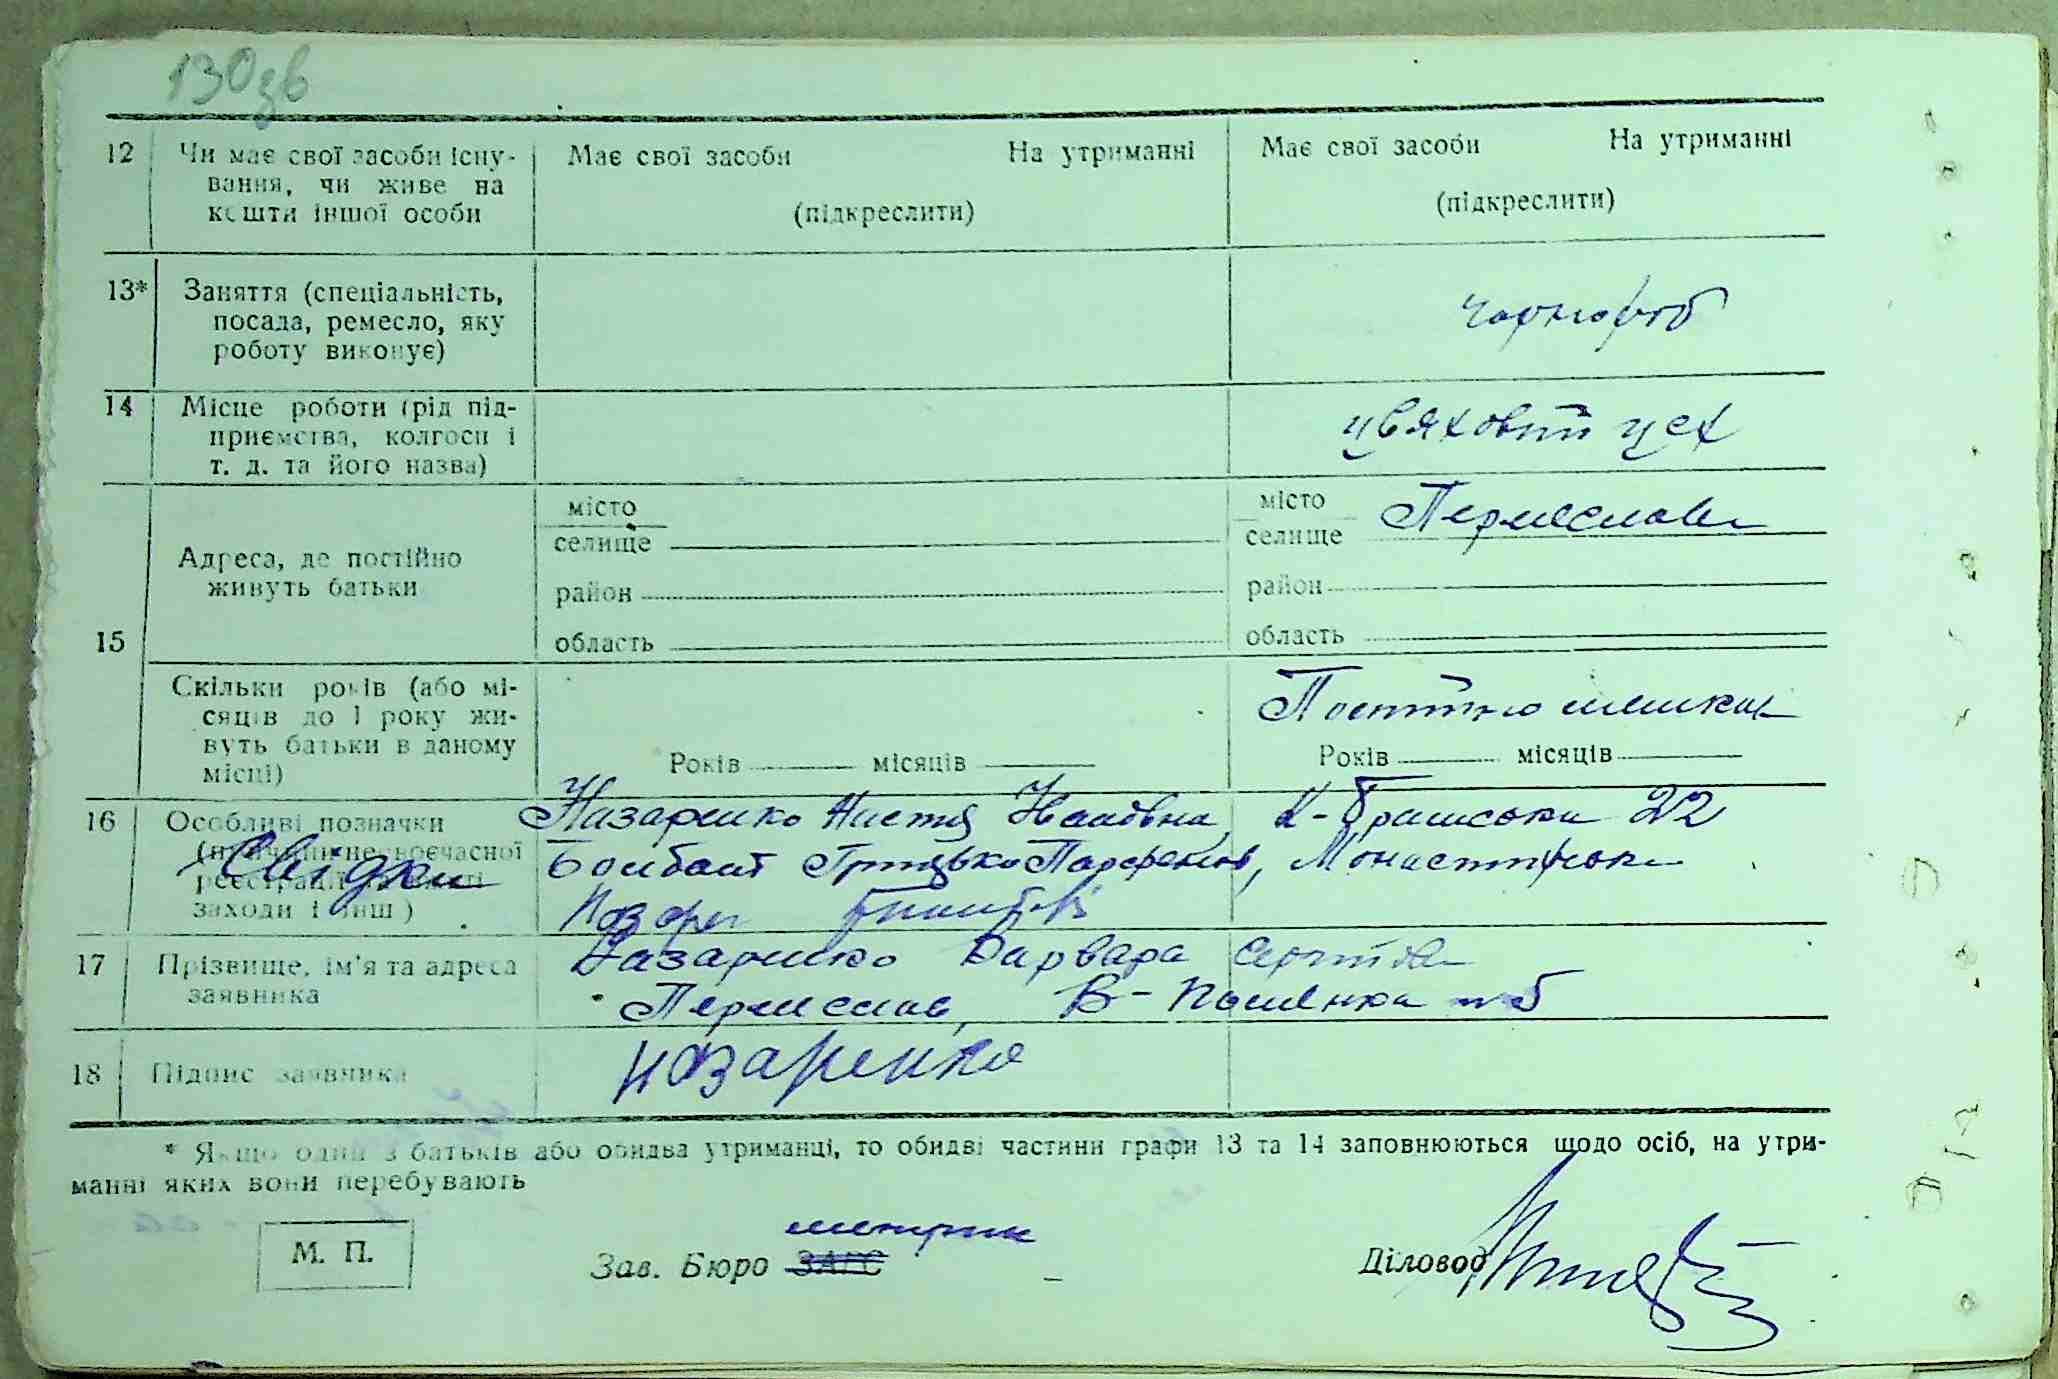 130зв
12 Чи має свої засоби існу- Має свої засоби На утриманні Має свої засоби На утриманні
вання, чи живе на
кошти іншої особи (підкреслити) (підкреслити)
13* Заняття (спеціальність,
посада, ремесло, яку чорнороб
роботу виконує)
14 Місце роботи (рід під-
приємства, колгосп і цвяховий цех
т. д. та його назва)
місто місто Переяслав
селище селище
15 Адреса, де постійно
живуть батьки район район
область область
Скільки років (або мі-
сяців до 1 року жи- Постійно мешкає
вуть батьки в даному
місці) Років місяців Років місяців
16 Особливі позначки Назаренко Настя 22
(причини несвоєчасної
Свідки Грицько
реєстрації
заходи і інш)
17 Прізвище, ім'я та адреса Назаренко Варвара
заявника Переяслав, 5
18 Підпис заявника Назаренко
* Якщо один з батьків або обидва утриманці, то обидві частини графи 13 та 14 заповнюються щодо осіб, на утри-
манні яких вони перебувають
М. П. метрик
Зав. Бюро ЗАГС Діловод